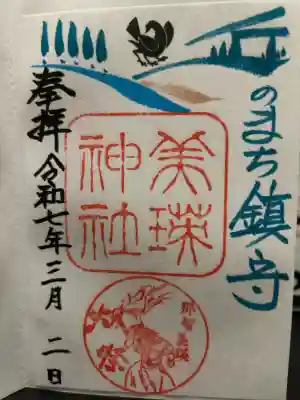 丘のまち鎮守
美瑛神社
奉拝 令和七年三月 二日